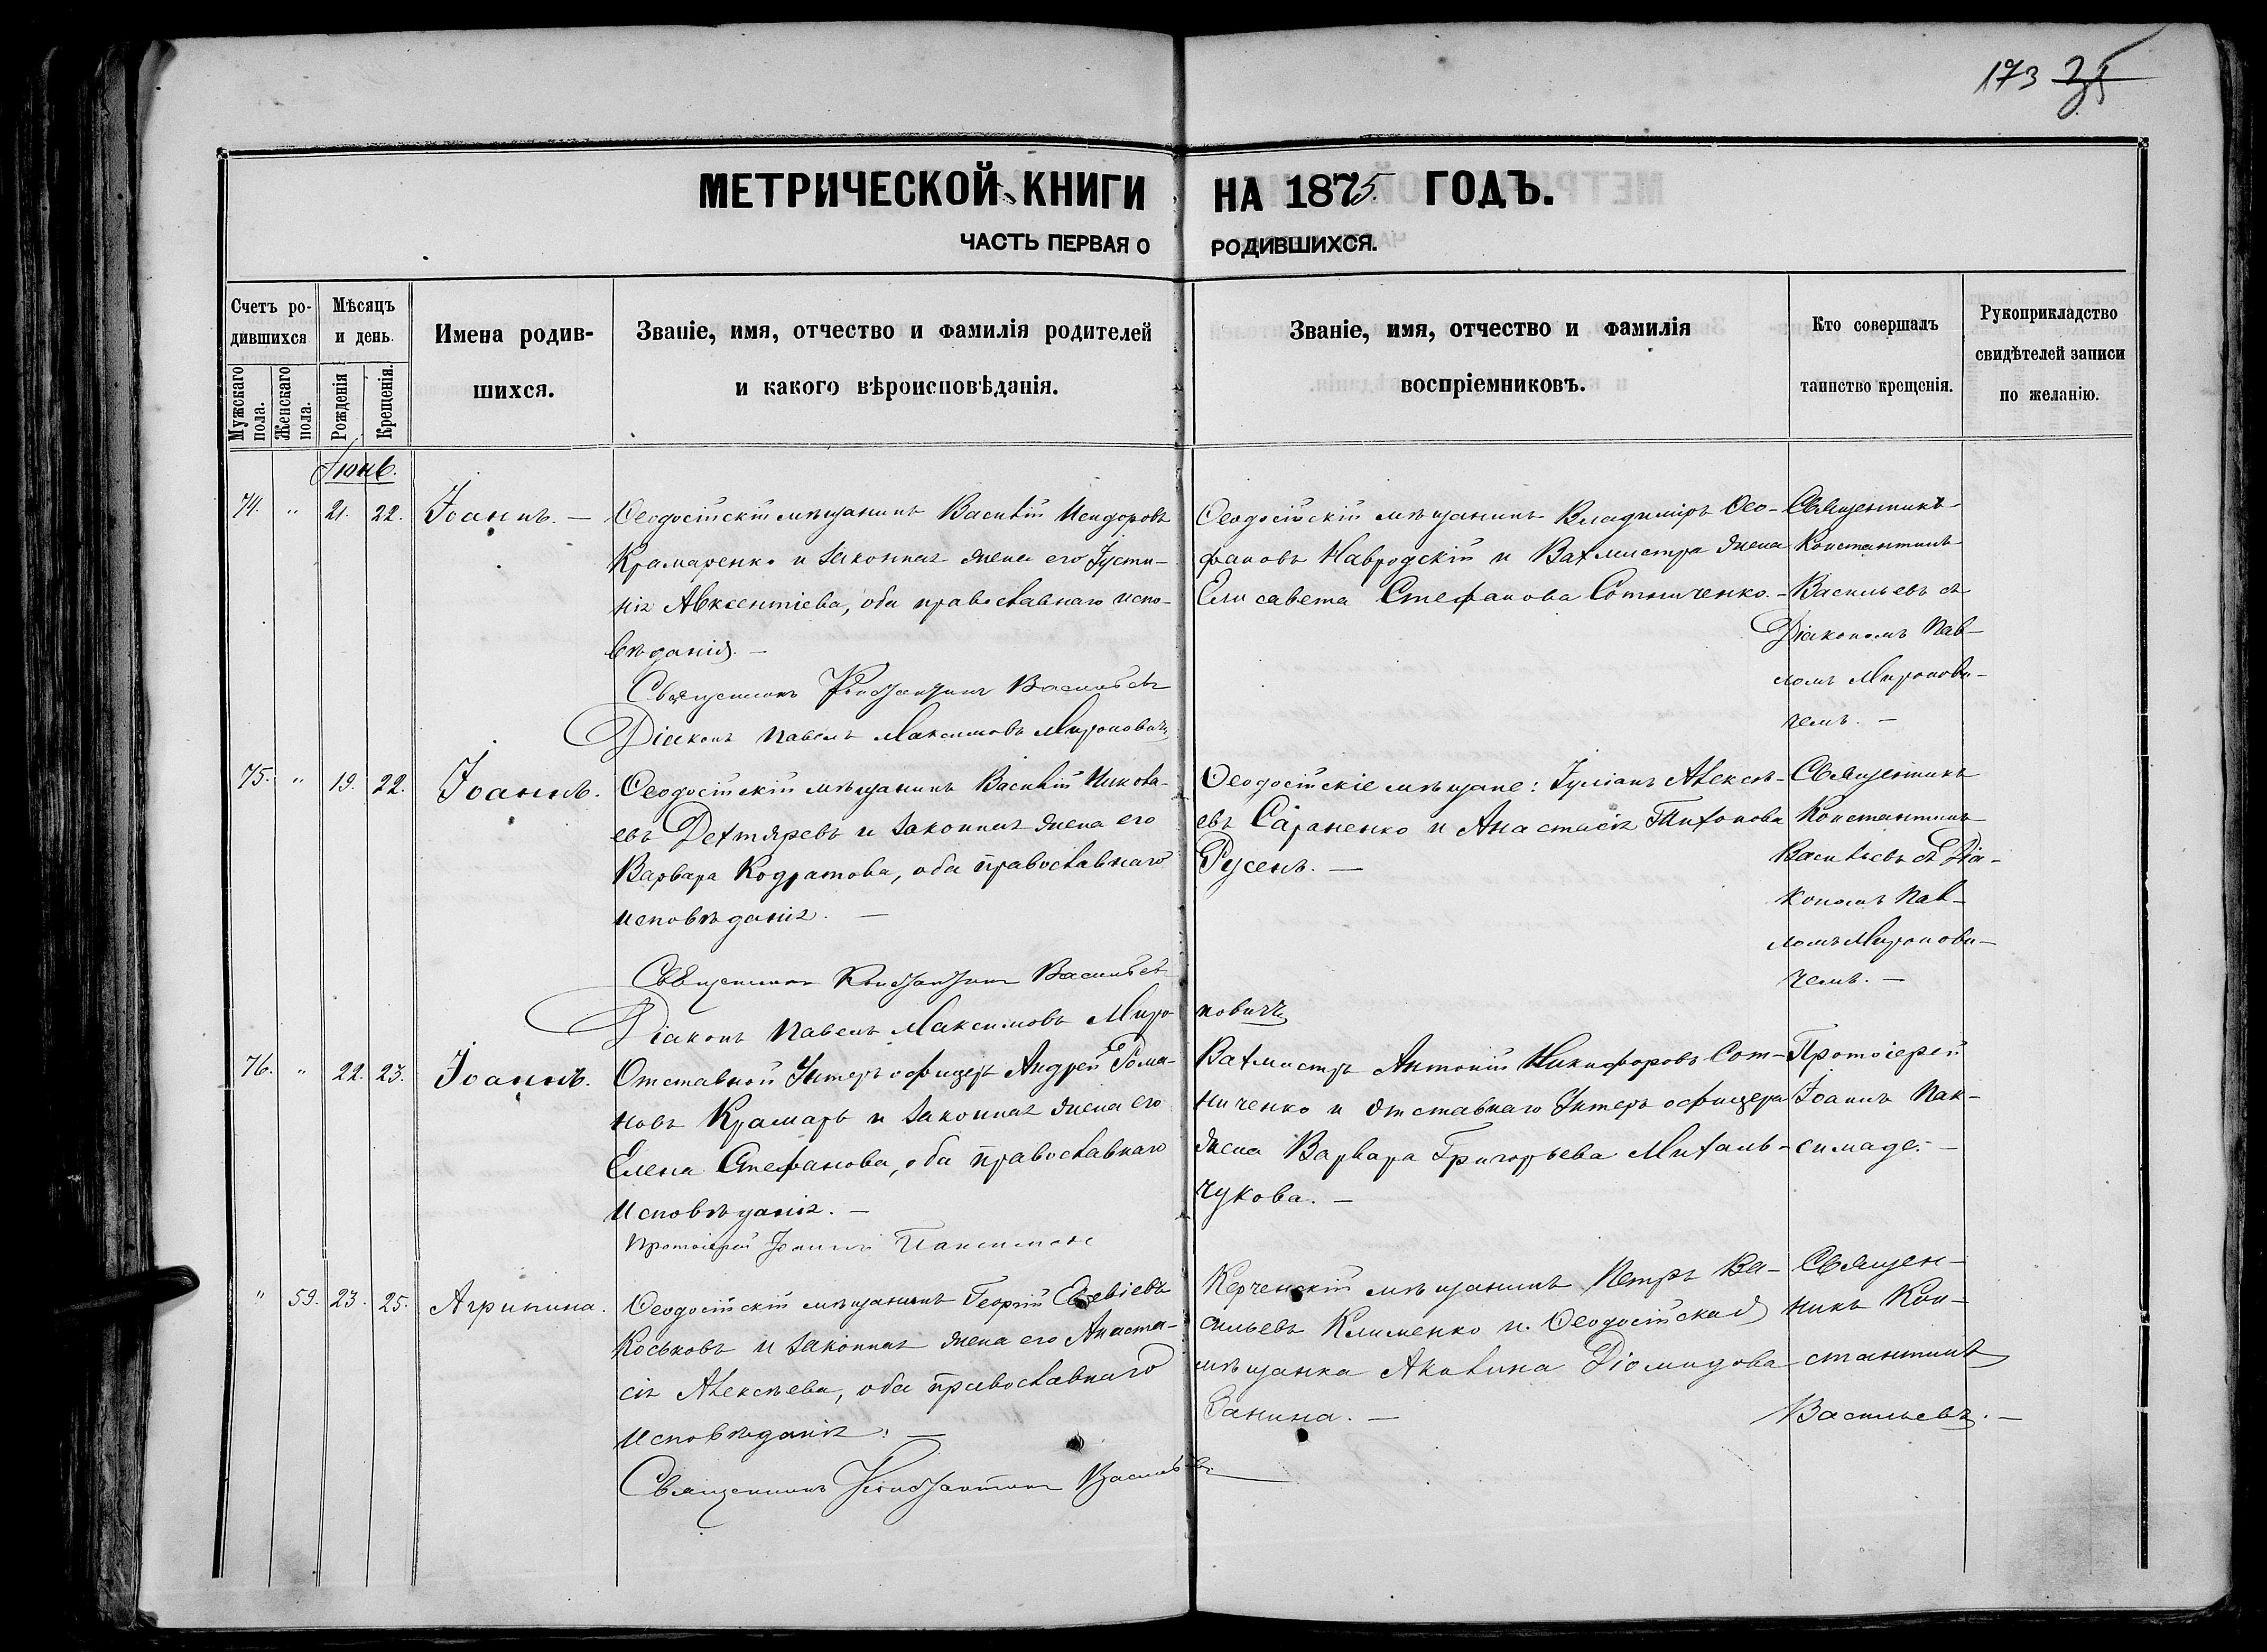 173 35
МЕТРИЧЕСКОЙ КНИГИ НА 1875 ГОДЪ.
ЧАСТЬ ПЕРВАЯ О РОДИВШИХСЯ.
Счетъ ро-
дившихся
Мужскаго пола.
Женскаго пола.
Мѣсяцъ
и день.
Рожденія
Крещенія.
Имена родив-
шихся.
Званіе, имя, отчество и фамилія родителей
и какого вѣроисповѣданія.
Званіе, имя, отчество и фамилія
воспріемниковъ.
Кто совершалъ
таинство крещенія.
Рукоприкладство
свидѣтелей записи
по желанію.
Іюнь.
74. " 21. 22. Іоаннъ. —
Ѳеодосійскій мѣщанинъ Василій Исидоровъ
Крамаренко и законная жена его Іусти-
нія Авксентіева, оба православнаго испо-
вѣданія. —
Священникъ Константинъ Васильевъ
Діаконъ Павелъ Максимовъ Мироновичъ
Ѳеодосійскій мѣщанинъ Владиміръ Ѳео-
фановъ Навродскій и Вахмистра жена
Елисавета Стефанова Сотниченко. —
Священникъ
Константинъ
Васильевъ съ
Діакономъ Пав-
ломъ Миронови-
чемъ. —
75. " 19. 22. Іоаннъ.
Ѳеодосійскій мѣщанинъ Василій Никола-
евъ Дехтяревъ и законная жена его
Варвара Кодратова, оба православнаго
исповѣданія. —
Священникъ Константинъ Васильевъ
Діаконъ Павелъ Максимовъ Миро-
новичъ
Ѳеодосійскіе мѣщане: Іуліанъ Алексѣ-
евъ Сараненко и Анастасія Тихонова
Русенъ. —
Священникъ
Константинъ
Васильевъ съ Діа-
кономъ Пав-
ломъ Миронови-
чемъ. —
76. " 22. 23. Іоаннъ.
Отставной Унтеръ офицеръ Андрей Рома-
новъ Крамарь и законная жена его
Елена Стефанова, оба православнаго
исповѣданія. —
Протоіерей Іоаннъ Паксимаде
Вахмистръ Антоній Никифоровъ Сот-
ниченко и отставнаго Унтеръ офицера
жена Варвара Григорьева Михаль-
чукова. —
Протоіерей
Іоаннъ Пак-
симаде. —
" 59. 23. 25. Агрипина.
Ѳеодосійскій мѣщанинъ Георгій Евсевіевъ
Коськовъ и законная жена его Анаста-
сія Алексѣева, оба православнаго
исповѣданія. —
Священникъ Константинъ Васильевъ.
Керченскій мѣщанинъ Петръ Ва-
сильевъ Клименко и Ѳеодосійская
мѣщанка Акилина Діомидова
Занина. —
Священ-
никъ Кон-
стантинъ
Васильевъ. —